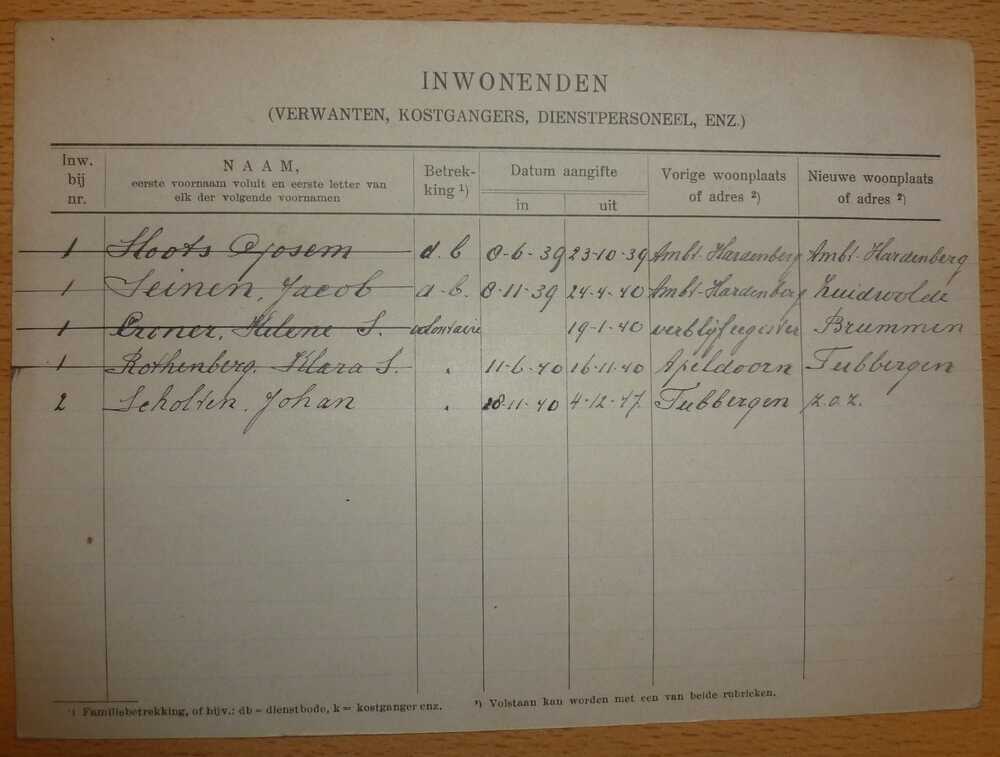 INWONENDEN
(VERWANTEN, KOSTGANGERS, DIENSTPERSONEEL, ENZ.)
Inw. bij nr. NAAM, eerste voornaam voluit en eerste letter van elk der volgende voornamen Betrek-king ¹) Datum aangifte in uit Vorige woonplaats of adres ²) Nieuwe woonplaats of adres ²)
1 Sloots d.b 8-6-39 23-10-39 Ambt-Hardenberg Ambt-Hardenberg
1 Seinen, Jacob d-b. 8-11-39 24-4-40 Ambt-Hardenberg Zuidwolde
1 Helene S. volontaire 19-1-40 verblijfregister Brummen
1 Rothenberg, Klara S. " 11-6-40 16-11-40 Apeldoorn Tubbergen
2 Scholten, Johan " 28-11-40 4-12-47. Tubbergen z.o.z.
¹) Familiebetrekking, of bijv.: db = dienstbode, k = kostganger enz. ²) Volstaan kan worden met een van beide rubrieken.